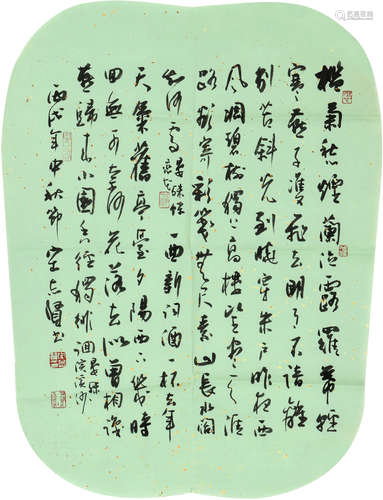 槛菊愁煙蘭泣露羅幕輕
寒燕子雙飛去明月不諳離
别苦斜光到曉穿朱戶昨夜西
風凋碧樹獨上高樓望盡天涯
路欲寄彩箋無尺素山長水闊
知何處 晏殊蝶戀花 一曲新詞酒一杯去年
天氣舊亭臺夕陽西下幾時
回無可奈何花落去似曾相識
燕歸來小園香徑獨徘徊 晏殊浣溪沙
丙戌年中秋節宋志賢书